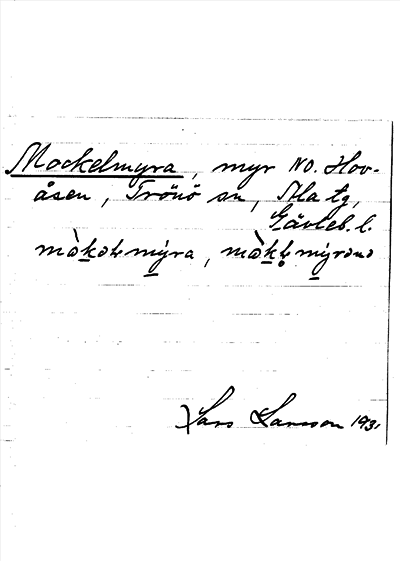 Mockelmyra, myr NO. Hov-
åsen, Trönö sn, Ala tg,
Gävleb. l.
mòkəlmýra, mòkl̥mýrənə
Lars Larsson 193